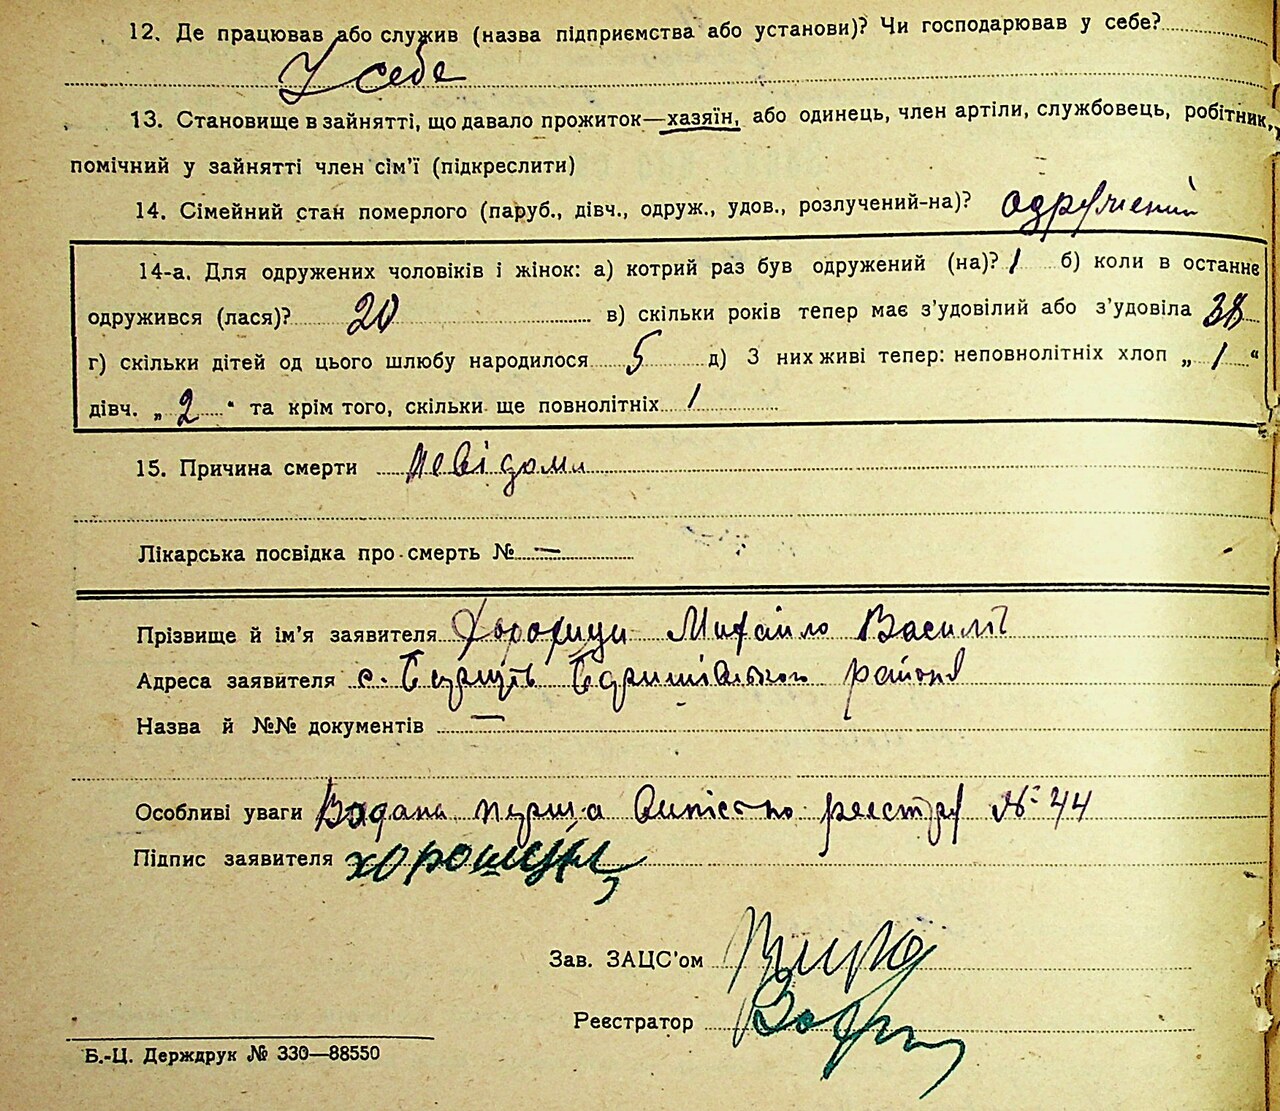 12. Де працював або служив (назва підприємства або установи)? Чи господарював у себе?
У себе
13. Становище в зайнятті, що давало прожиток—хазяїн, або одинець, член артіли, службовець, робітник,
помічний у зайнятті член сім'ї (підкреслити)
14. Сімейний стан померлого (паруб., дівч., одруж., удов., розлучений-на)? одружений
14-а. Для одружених чоловіків і жінок: а) котрий раз був одружений (на)? 1 б) коли в останнє
одружився (лася)? 20 в) скільки років тепер має з'удовілий або з'удовіла 38
г) скільки дітей од цього шлюбу народилося 5 д) З них живі тепер: неповнолітніх хлоп „ 1 “
дівч. „ 2 “ та крім того, скільки ще повнолітніх 1
15. Причина смерти невідома
Лікарська посвідка про смерть № —
Прізвище й ім'я заявителя Михайло Василів
Адреса заявителя с. району
Назва й №№ документів —
Особливі уваги Видана перша реєстру № 44
Підпис заявителя
Зав. ЗАЦС'ом
Реєстратор
Б.-Ц. Держдрук № 330—88550